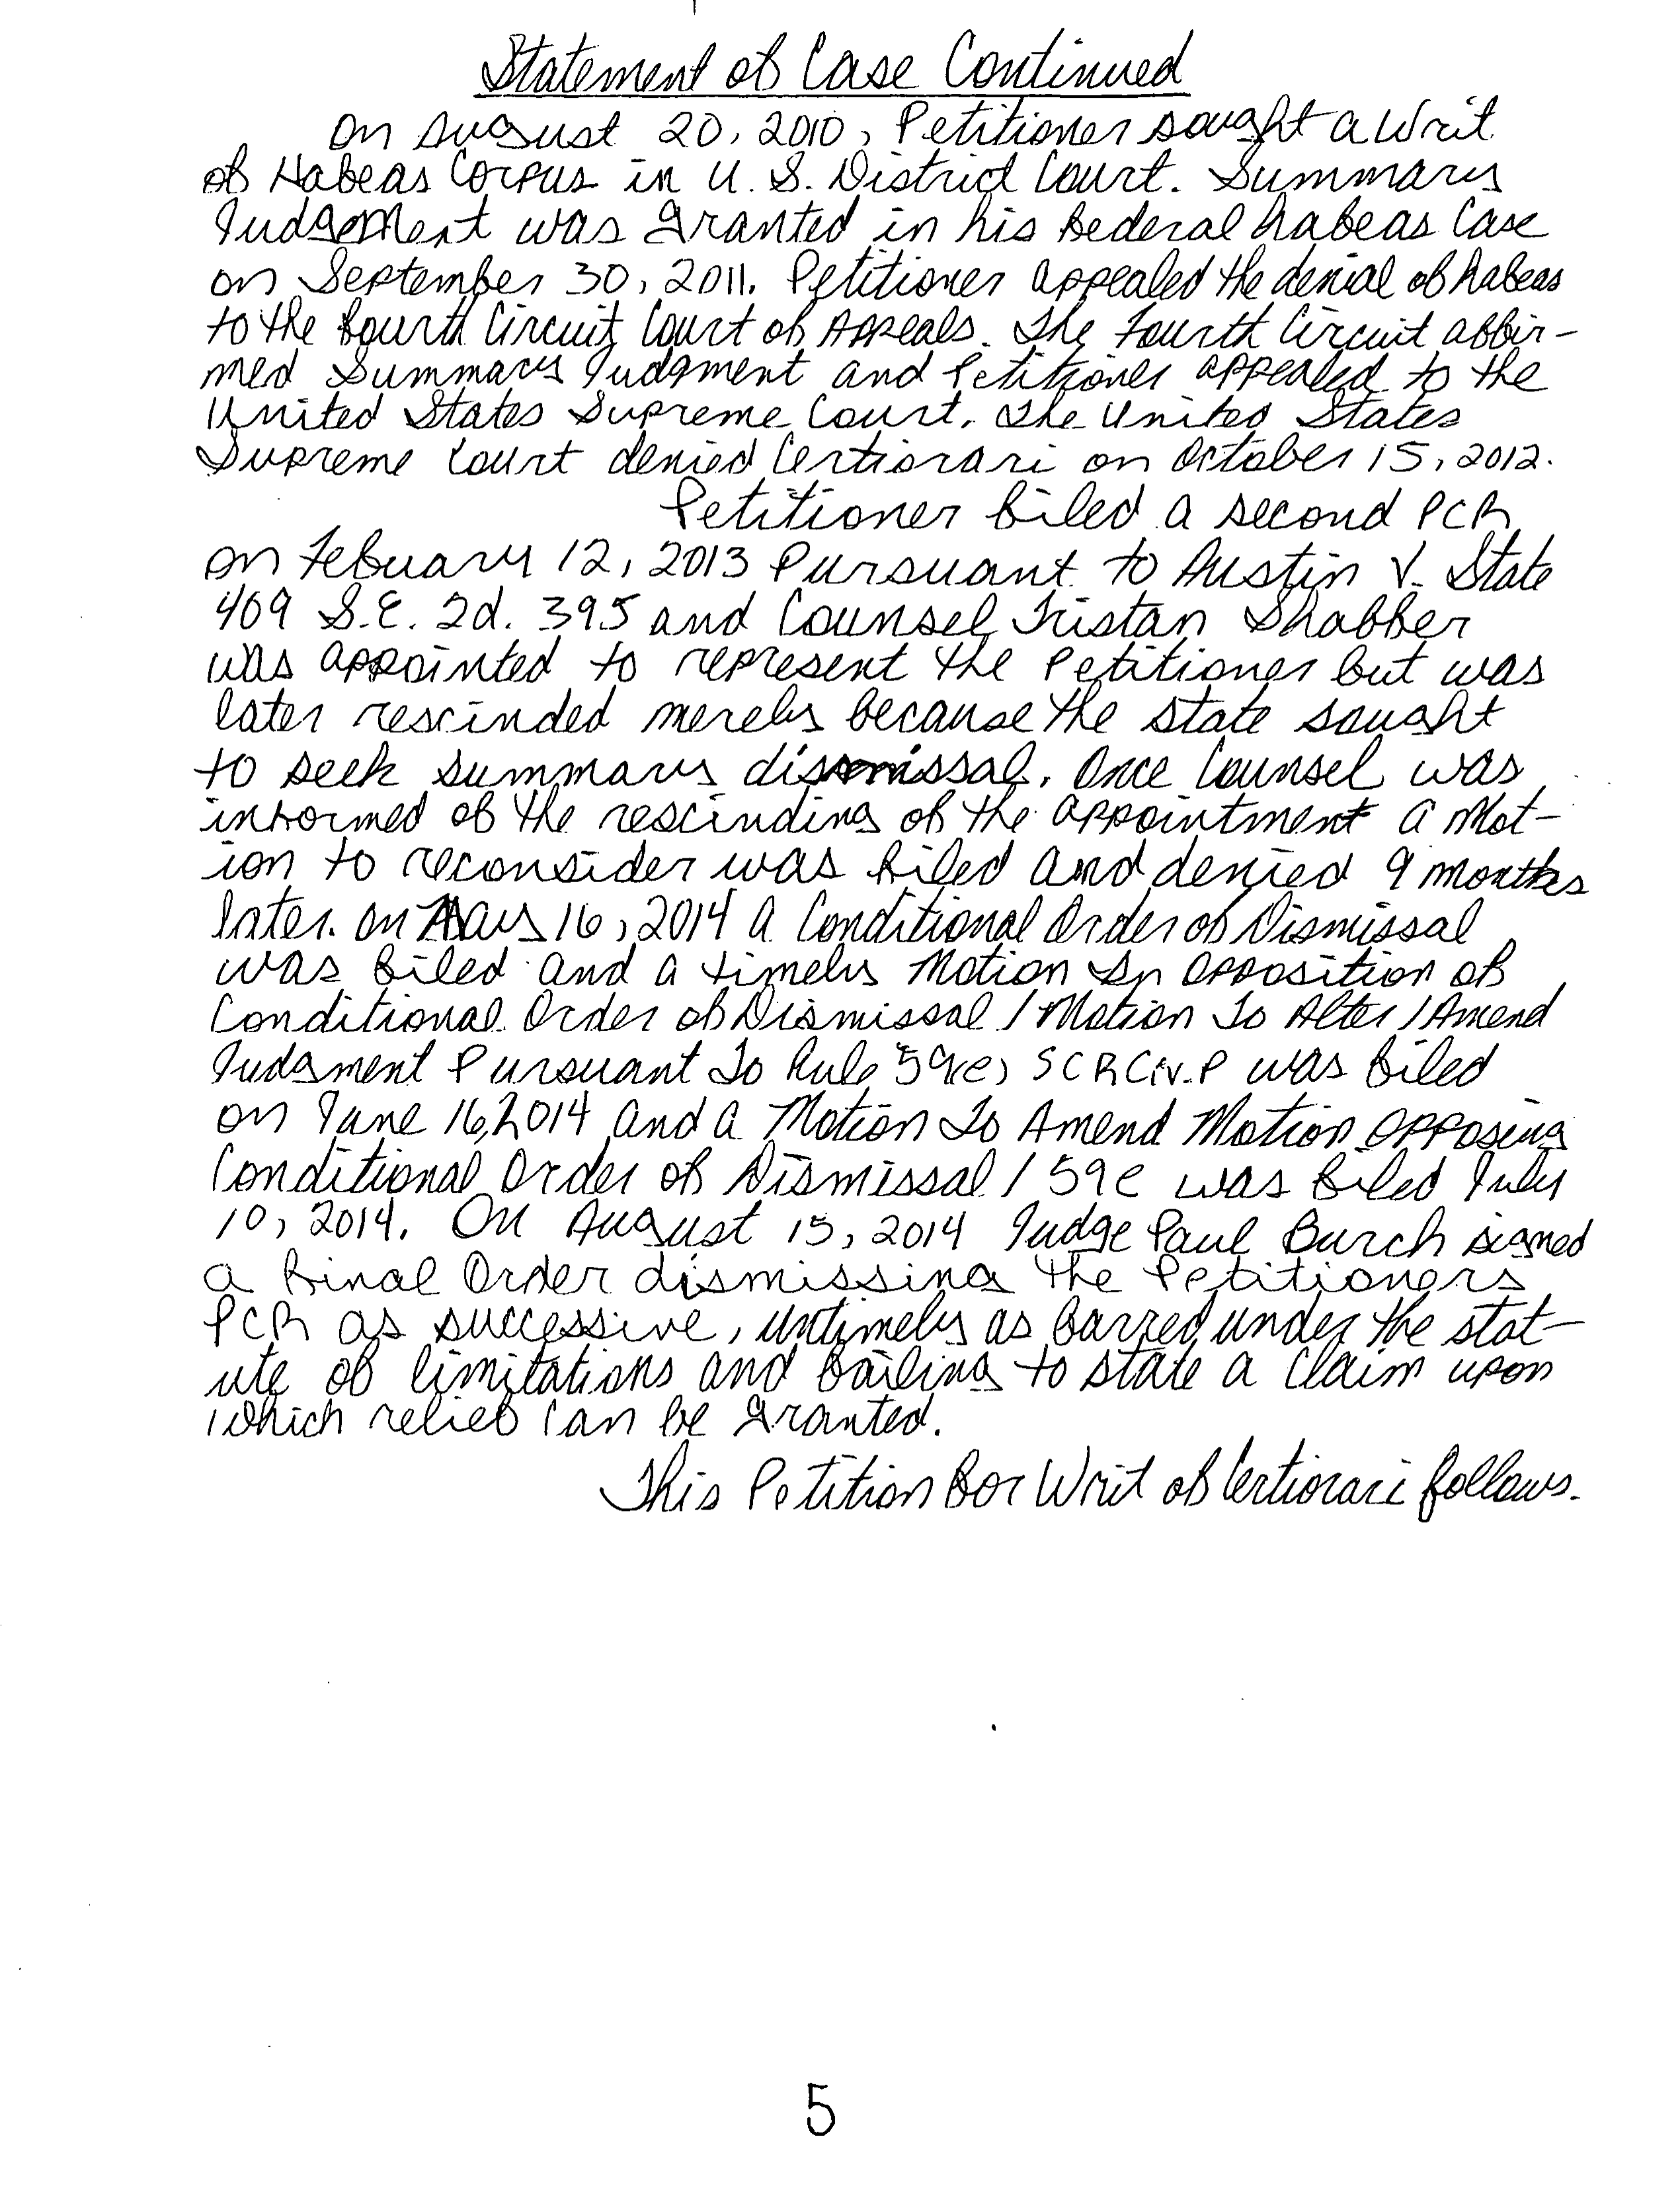 Statement of Case Continued
On August 20, 2010, Petitioner sought a Writ
of Habeas Corpus in U. S. District Court. Summary
Judgement was granted in his federal habeas Case
on September 30, 2011. Petitioner appealed the denial of habeas
to the fourth Circuit Court of Appeals. The Fourth Circuit affir-
med Summary Judgment and Petitioner appealed to the
United States Supreme Court. The United States
Supreme Court denied Certiorari on October 15, 2012.
Petitioner filed a second PCR
on Febuary 12, 2013 Pursuant to Austin V. State
409 S.E. 2d. 395 and Counsel Tristan Shaffer
was appointed to represent the Petitioner but was
later rescinded merely because the State sought
to seek summary dismissal. Once Counsel was
informed of the rescinding of the appointment a Mot-
ion to reconsider was filed and denied 9 months
later. On May 16, 2014 a Conditional Order of Dismissal
was filed and a timely Motion In Opposition of
Conditional Order of Dismissal / Motion To Alter / Amend
Judgment Pursuant To Rule 59(e) SCRCiv.P was filed
on June 16, 2014 and a Motion To Amend Motion Opposing
Conditional Order of Dismissal / 59e was filed July
10, 2014. On August 15, 2014 Judge Paul Burch signed
a final Order dismissing the Petitioners
PCR as successive, untimely as barred under the stat-
ute of limitations and failing to state a claim upon
which relief can be granted.
This Petition for Writ of Certiorari follows.
5